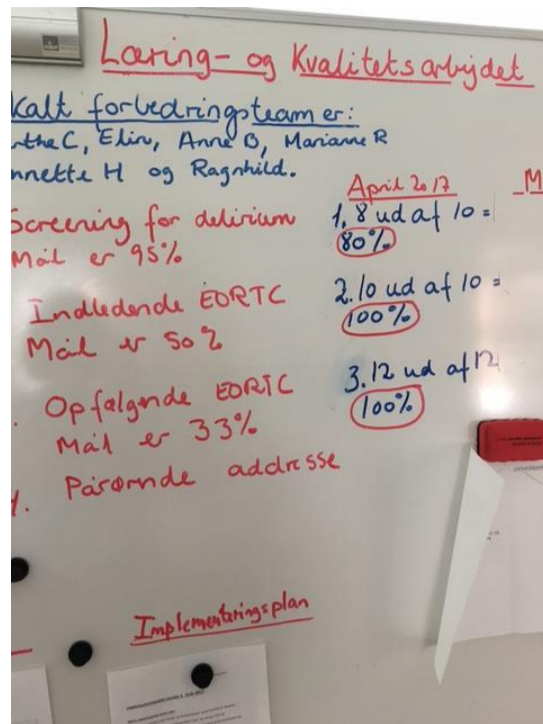 Læring- og Kvalitetsarbejdet
kalt forbedringsteam er:
the C, Elin, Anne B, Marianne R
nnette H og Ragnhild.
April 2017
M
Screening for delirium
Mål er 95%
1, 8 ud af 10 =
80%
Indledende EORTC
Mål er 50%
2. 10 ud af 10 =
100%
Opfølgende EORTC
Mål er 33%
3. 12 ud af 12
100%
Pårørnde addresse
Implementeringsplan